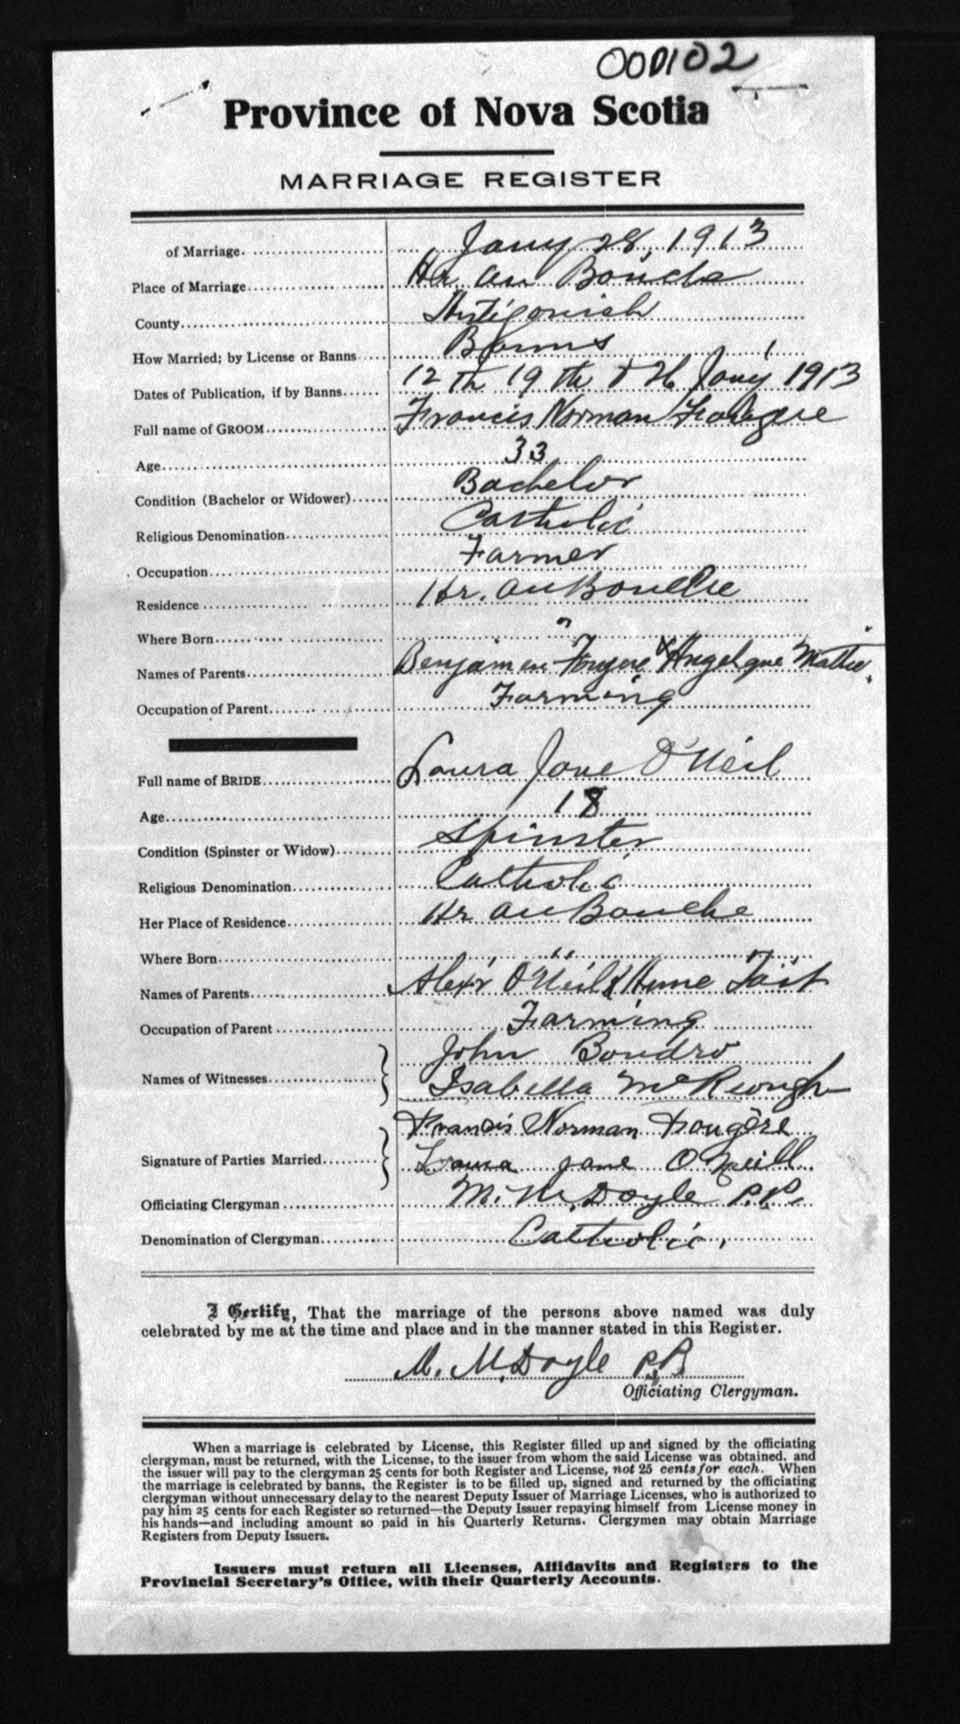 000102
Province of Nova Scotia
MARRIAGE REGISTER
of Marriage. Jany 28, 1913
Place of Marriage Hr. au Bouche
County Antigonish
How Married; by License or Banns Banns
Dates of Publication, if by Banns 12th 19th & 26 Jany 1913
Full name of GROOM Francis Norman Fougere
Age 33
Condition (Bachelor or Widower) Bachelor
Religious Denomination Catholic
Occupation Farmer
Residence Hr. au Bouche
Where Born "
Names of Parents Benjamin Fougere & Angelque Mattie.
Occupation of Parent Farming
Full name of BRIDE Laura Jane O'Neil
Age 18
Condition (Spinster or Widow) Spinster
Religious Denomination Catholic
Her Place of Residence Hr au Bouche
Where Born "
Names of Parents Alexr O'Neil & Anne Tait
Occupation of Parent Farming
John Boudro
Names of Witnesses Isabella McKeough
Francis Norman Fougère
Signature of Parties Married Laura Jane O'Neill
Officiating Clergyman M. M. Doyle P.P.
Denomination of Clergyman Catholic.
I Certify, That the marriage of the persons above named was duly
celebrated by me at the time and place and in the manner stated in this Register.
M. M. Doyle P.P.
Officiating Clergyman.
When a marriage is celebrated by License, this Register filled up and signed by the officiating
clergyman, must be returned, with the License, to the issuer from whom the said License was obtained, and
the issuer will pay to the clergyman 25 cents for both Register and License, not 25 cents for each. When
the marriage is celebrated by banns, the Register is to be filled up, signed and returned by the officiating
clergyman without unnecessary delay to the nearest Deputy Issuer of Marriage Licenses, who is authorized to
pay him 25 cents for each Register so returned—the Deputy Issuer repaying himself from License money in
his hands—and including amount so paid in his Quarterly Returns. Clergymen may obtain Marriage
Registers from Deputy Issuers.
Issuers must return all Licenses, Affidavits and Registers to the
Provincial Secretary's Office, with their Quarterly Accounts.